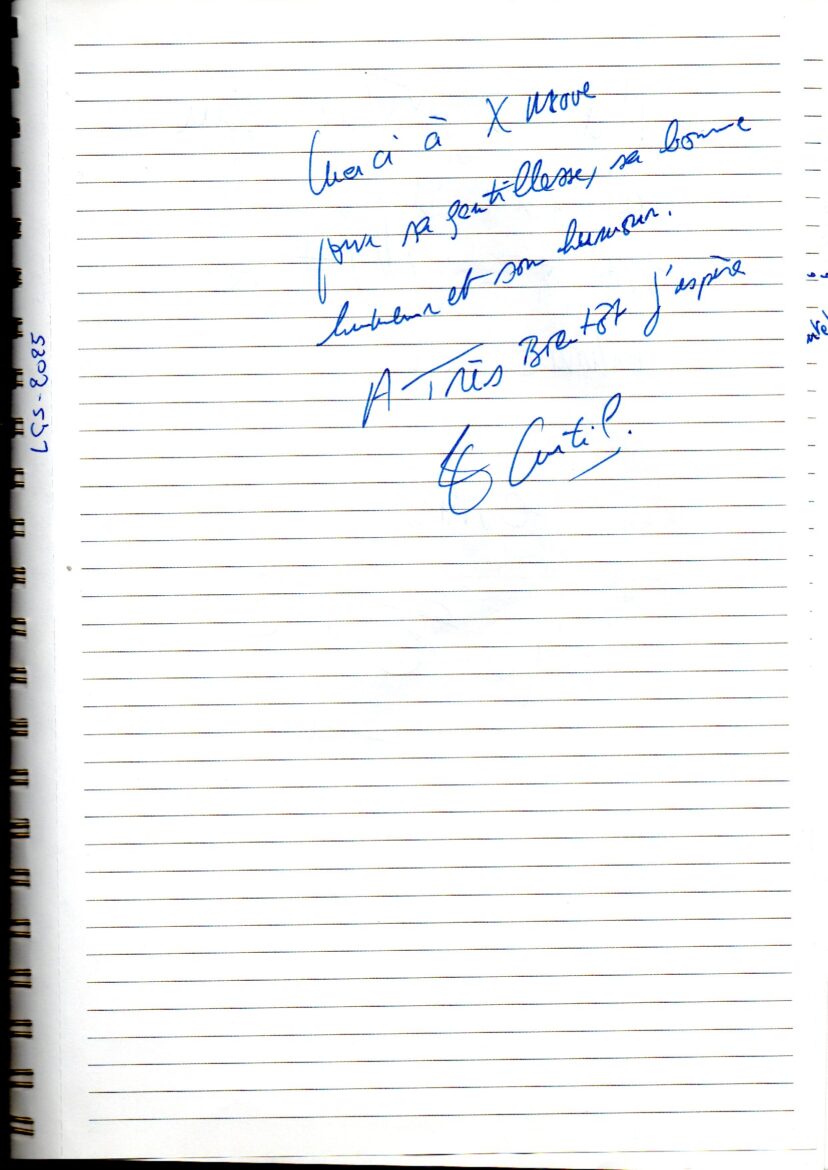 Merci à X Move
pour sa gentillesse, sa bonne
humeur et son humour.
A Très Bientôt j'espère
Curtil.
LGS-2025